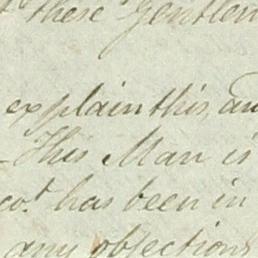 these Gentlem
explain this, an
This Man is
cot. has been in
any objections